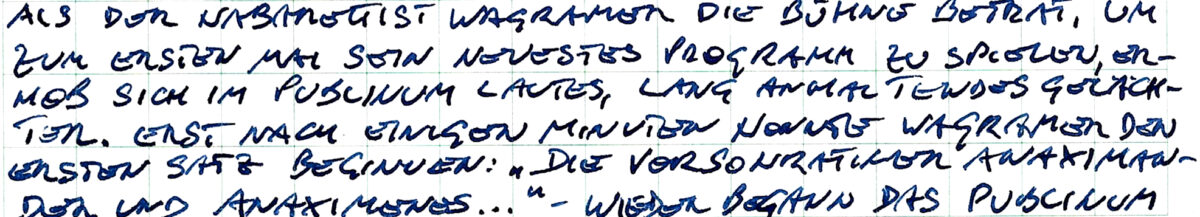 ALS DER KABARETTIST WAGRAMER DIE BÜHNE BETRAT, UM
ZUM ERSTEN MAL SEIN NEUESTES PROGRAMM ZU SPIELEN, ER-
HOB SICH IM PUBLIKUM LAUTES, LANG ANHALTENDES GELÄCH-
TER. ERST NACH EINIGEN MINUTEN KONNTE WAGRAMER DEN
ERSTEN SATZ BEGINNEN: „DIE VORSOKRATIKER ANAXIMAN-
DER UND ANAXIMENES..." - WIEDER BEGANN DAS PUBLIKUM